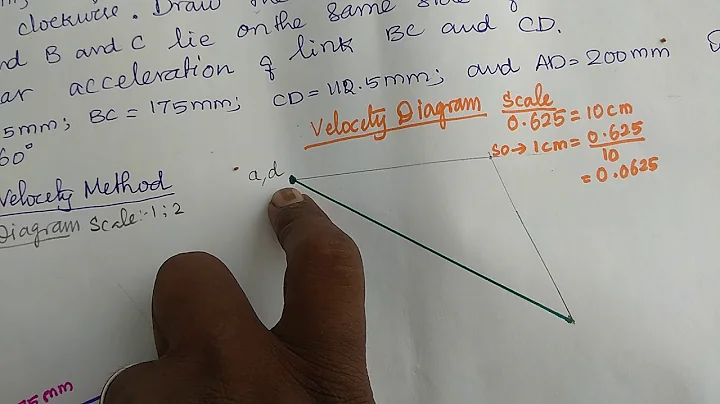 clockwise. Draw the
nd B and C lie on the same side
ar acceleration of link BC and CD.
5mm; BC = 175mm; CD = 112.5mm; and AD = 200mm
60°
Velocity Diagram
Scale
0.625 = 10cm
so → 1cm = 0.625/10
= 0.0625
Velocety Method
Diagram Scale:- 1:2
a,d
75mm